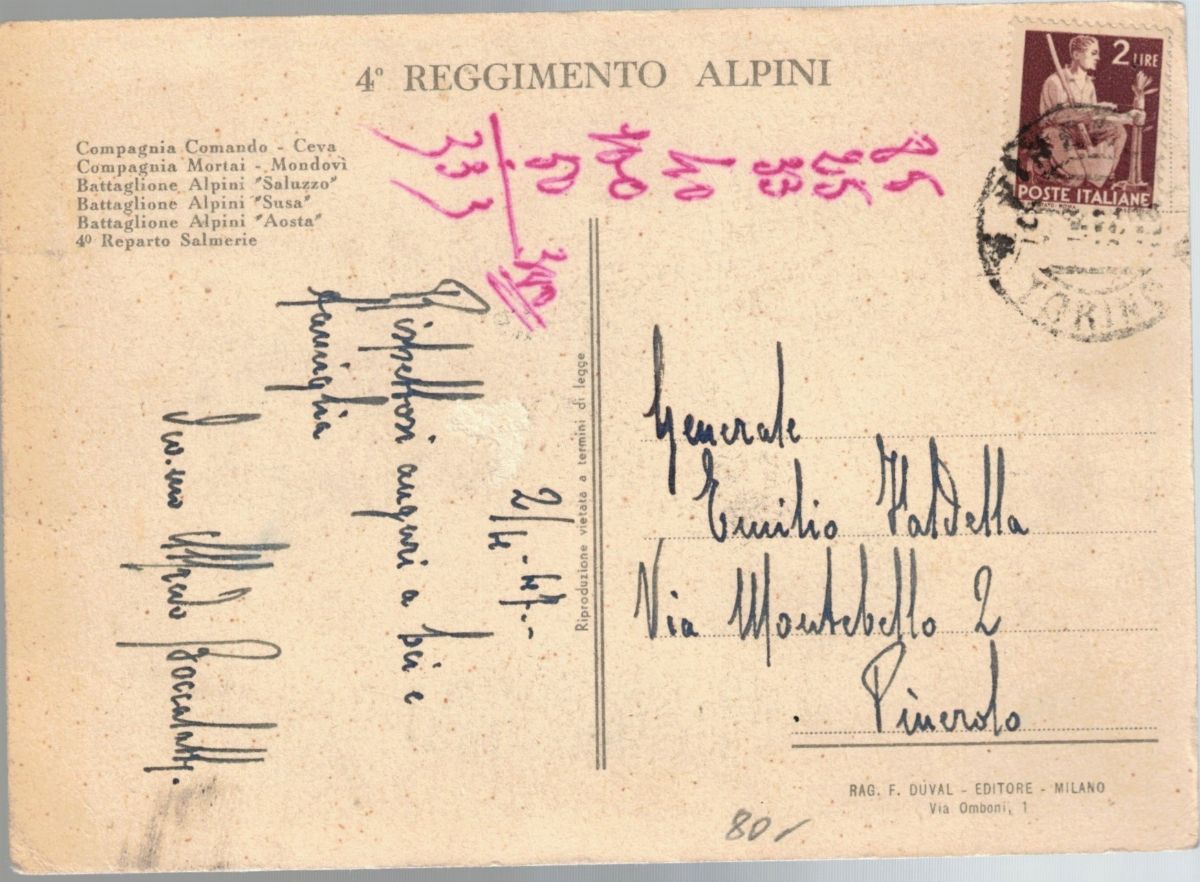 4º REGGIMENTO ALPINI
Compagnia Comando - Ceva
Compagnia Mortai - Mondovì
Battaglione Alpini "Saluzzo"
Battaglione Alpini "Susa"
Battaglione Alpini "Aosta"
4º Reparto Salmerie
2 LIRE
POSTE ITALIANE
TORINO
25
40
100
50
333
2/4-47.-
Rispettosi auguri a Lei e
famiglia
Alfredo
Riproduzione vietata a termini di legge
Generale
Emilio Faldella
Via Montebello 2
Pinerolo
RAG. F. DUVAL - EDITORE - MILANO
Via Omboni, 1
80